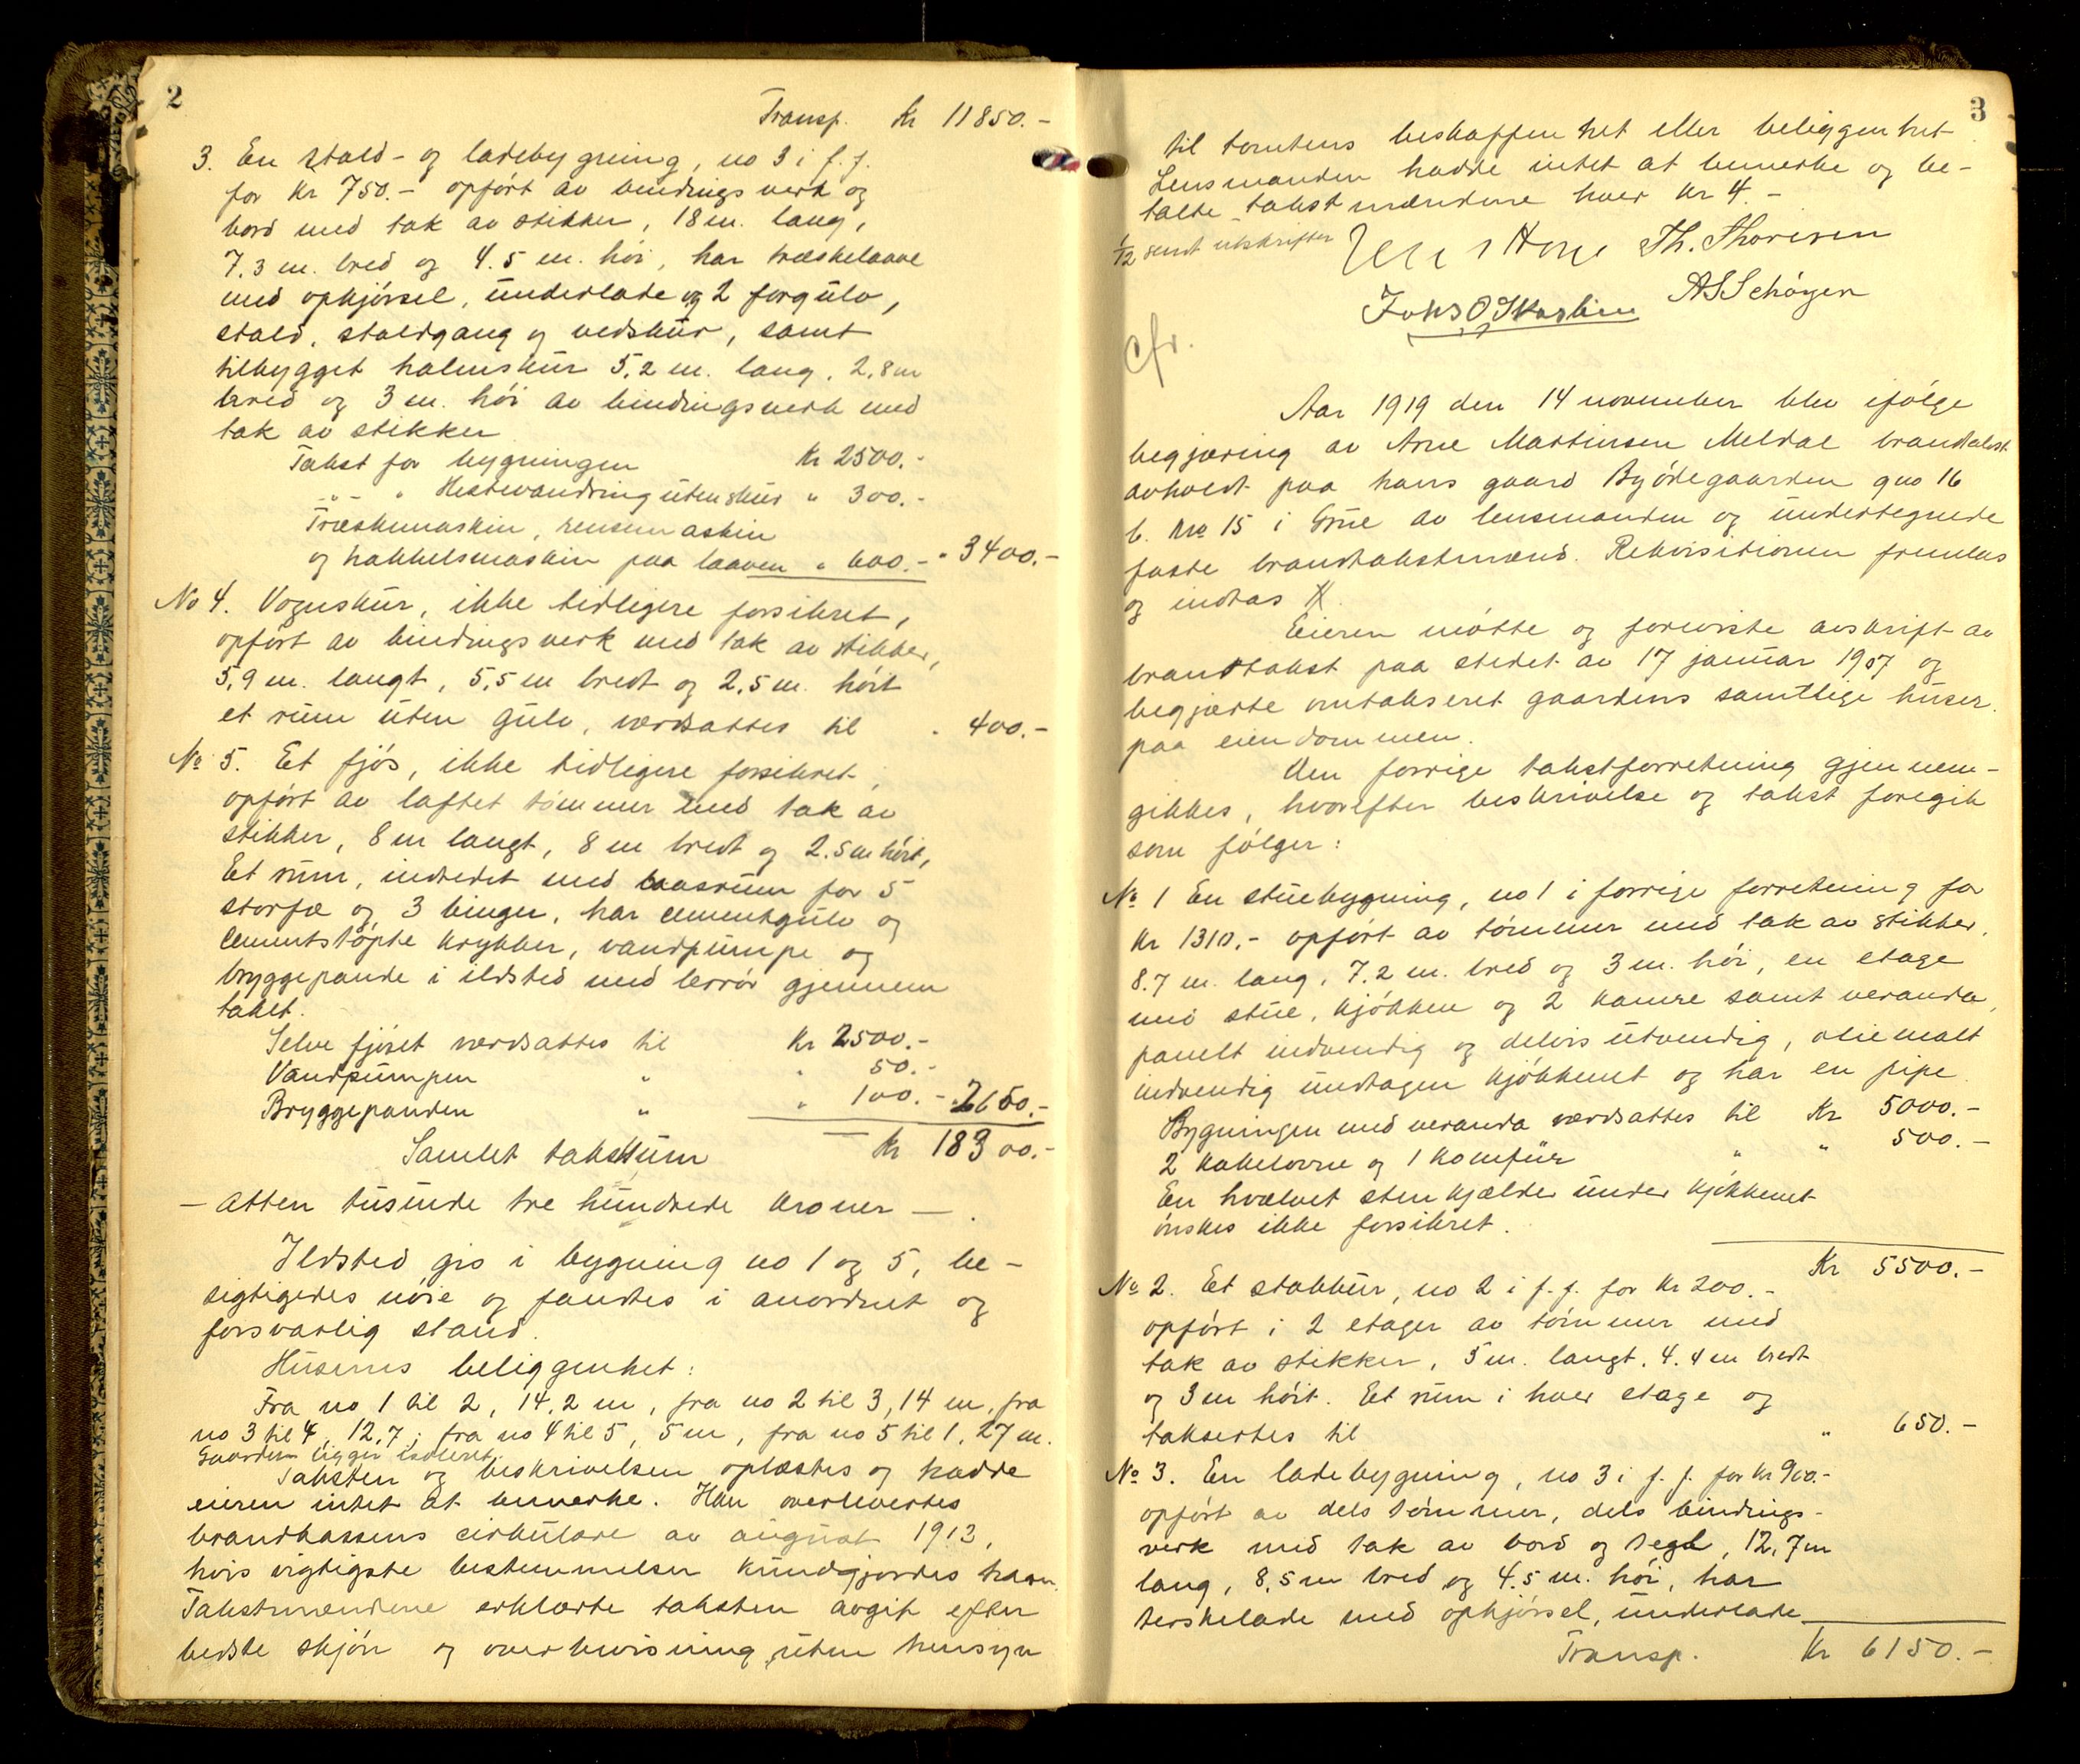 2
Transp. Kr 11850.-
3. En stald- og ladebygning, no 3 i f. f.
for Kr 750.- opført av bindingsverk og
bord med tak av stikker, 18 m. lang,
7.3 m. bred og 4.5 m. høi, har træskelaave
med opkjørsel, underlade og 2 forgulv,
stald, staldgang og vedskur, samt
tilbygget halmskur 5.2 m. lang, 2.8 m
bred og 3 m. høi av bindingsverk med
tak av stikker
Takst for bygningen Kr 2500.-
-"- " Hestevandring uten skur " 300.-
Træskemaskin, rensemaskin
og hakkelsmaskin paa laaven " 600.- " 3400.-
No 4. Vognskur, ikke tidligere forsikret,
opført av bindingsverk med tak av stikker,
5,9 m. langt, 5,5 m bredt og 2,5 m. høit
et rum uten gulv, værdsattes til " 400.-
No 5. Et fjøs, ikke tidligere forsikret,
opført av laftet tømmer med tak av
stikker, 8 m langt, 8 m bredt og 2.5 m høit,
Et rum, indredet med baasrum for 5
storfæ og 3 binger, har cementgulv og
cementstøpte krybber, vandpumpe og
bryggepande i ildsted med lerrør gjennem
taket.
Selve fjøset værdsattes til Kr 2500.-
Vandpumpen " " 50.-
Bryggepanden " " 100.- " 2650.-
Samlet takstsum Kr 18300.-
- Atten tusinde tre hundrede kroner -.
Ildsted gis i bygning no 1 og 5, be-
sigtigedes nøie og fandtes i anordnet og
forsvarlig stand.
Husenes beliggenhet:
Fra no 1 til 2, 14,2 m, fra no 2 til 3, 14 m, fra
no 3 til 4, 12,7, fra no 4 til 5, 5 m, fra no 5 til 1, 27 m.
Gaarden ligger isoleret.
Taksten og beskrivelsen oplæstes og hadde
eieren intet at bemerke. Han overleveredes
brandkassens cirkulære av august 1913,
hvis vigtigste bestemmelser kundgjordes ham.
Takstmændene erklærte taksten avgit efter
bedste skjøn og overbevisning uten hensyn
3
til tomtens beskaffenhet eller beliggenhet
Lensmanden hadde intet at bemerke og be-
talte takstmændene hver Kr 4.-
1/12 sendt utskrifter
Th. Thoresen
A S Schøyen
Cfr.
Aar 1919 den 14 november blev ifølge
begjæring av Arne Martinsen Meldal brandtakst
avholdt paa hans gaard Byødegaarden gno 16
b. no 15 i Grue av lensmanden og undertegnede
faste brandtakstmænd. Rekvisitionen fremlas
og indtas
Eieren møtte og foreviste avskrift av
brandtakst paa stedet av 17 januar 1907 og
begjærte omtakseret gaardens samtlige huser
paa eiendommen.
Den forrige takstforretning gjennem-
gikkes, hvorefter beskrivelse og takst foregik
som følger:
No 1 En stuebygning, no 1 i forrige forretning for
Kr 1310.- opført av tømmer med tak av stikker,
8.7 m. lang, 7.2 m. bred og 3 m. høi, en etage
med stue, kjøkken og 2 kamre samt veranda,
panelt indvendig og delvis utvendig, oliemalt
indvendig undtagen kjøkkenet og har en pipe
Bygningen med veranda værdsattes til Kr 5000.-
2 kakelovne og 1 komfur " " 500.-
En hvælvet stenkjælder under kjøkkenet
ønskes ikke forsikret.
Kr 5500.-
No 2. Et stabbur, no 2 i f. f. for Kr 200.-
opført i 2 etager av tømmer med
tak av stikker, 5 m. langt, 4.4 m bredt
og 3 m høit. Et rum i hver etage og
taksertes til " 650.-
No 3. En ladebygning, no 3 i f. f. for Kr 900.-
opført av dels tømmer, dels bindings-
verk med tak av bord og tegl, 12,7 m
lang, 8,5 m bred og 4.5 m. høi, har
terskelade med opkjørsel, underlade
Transp. Kr 6150.-